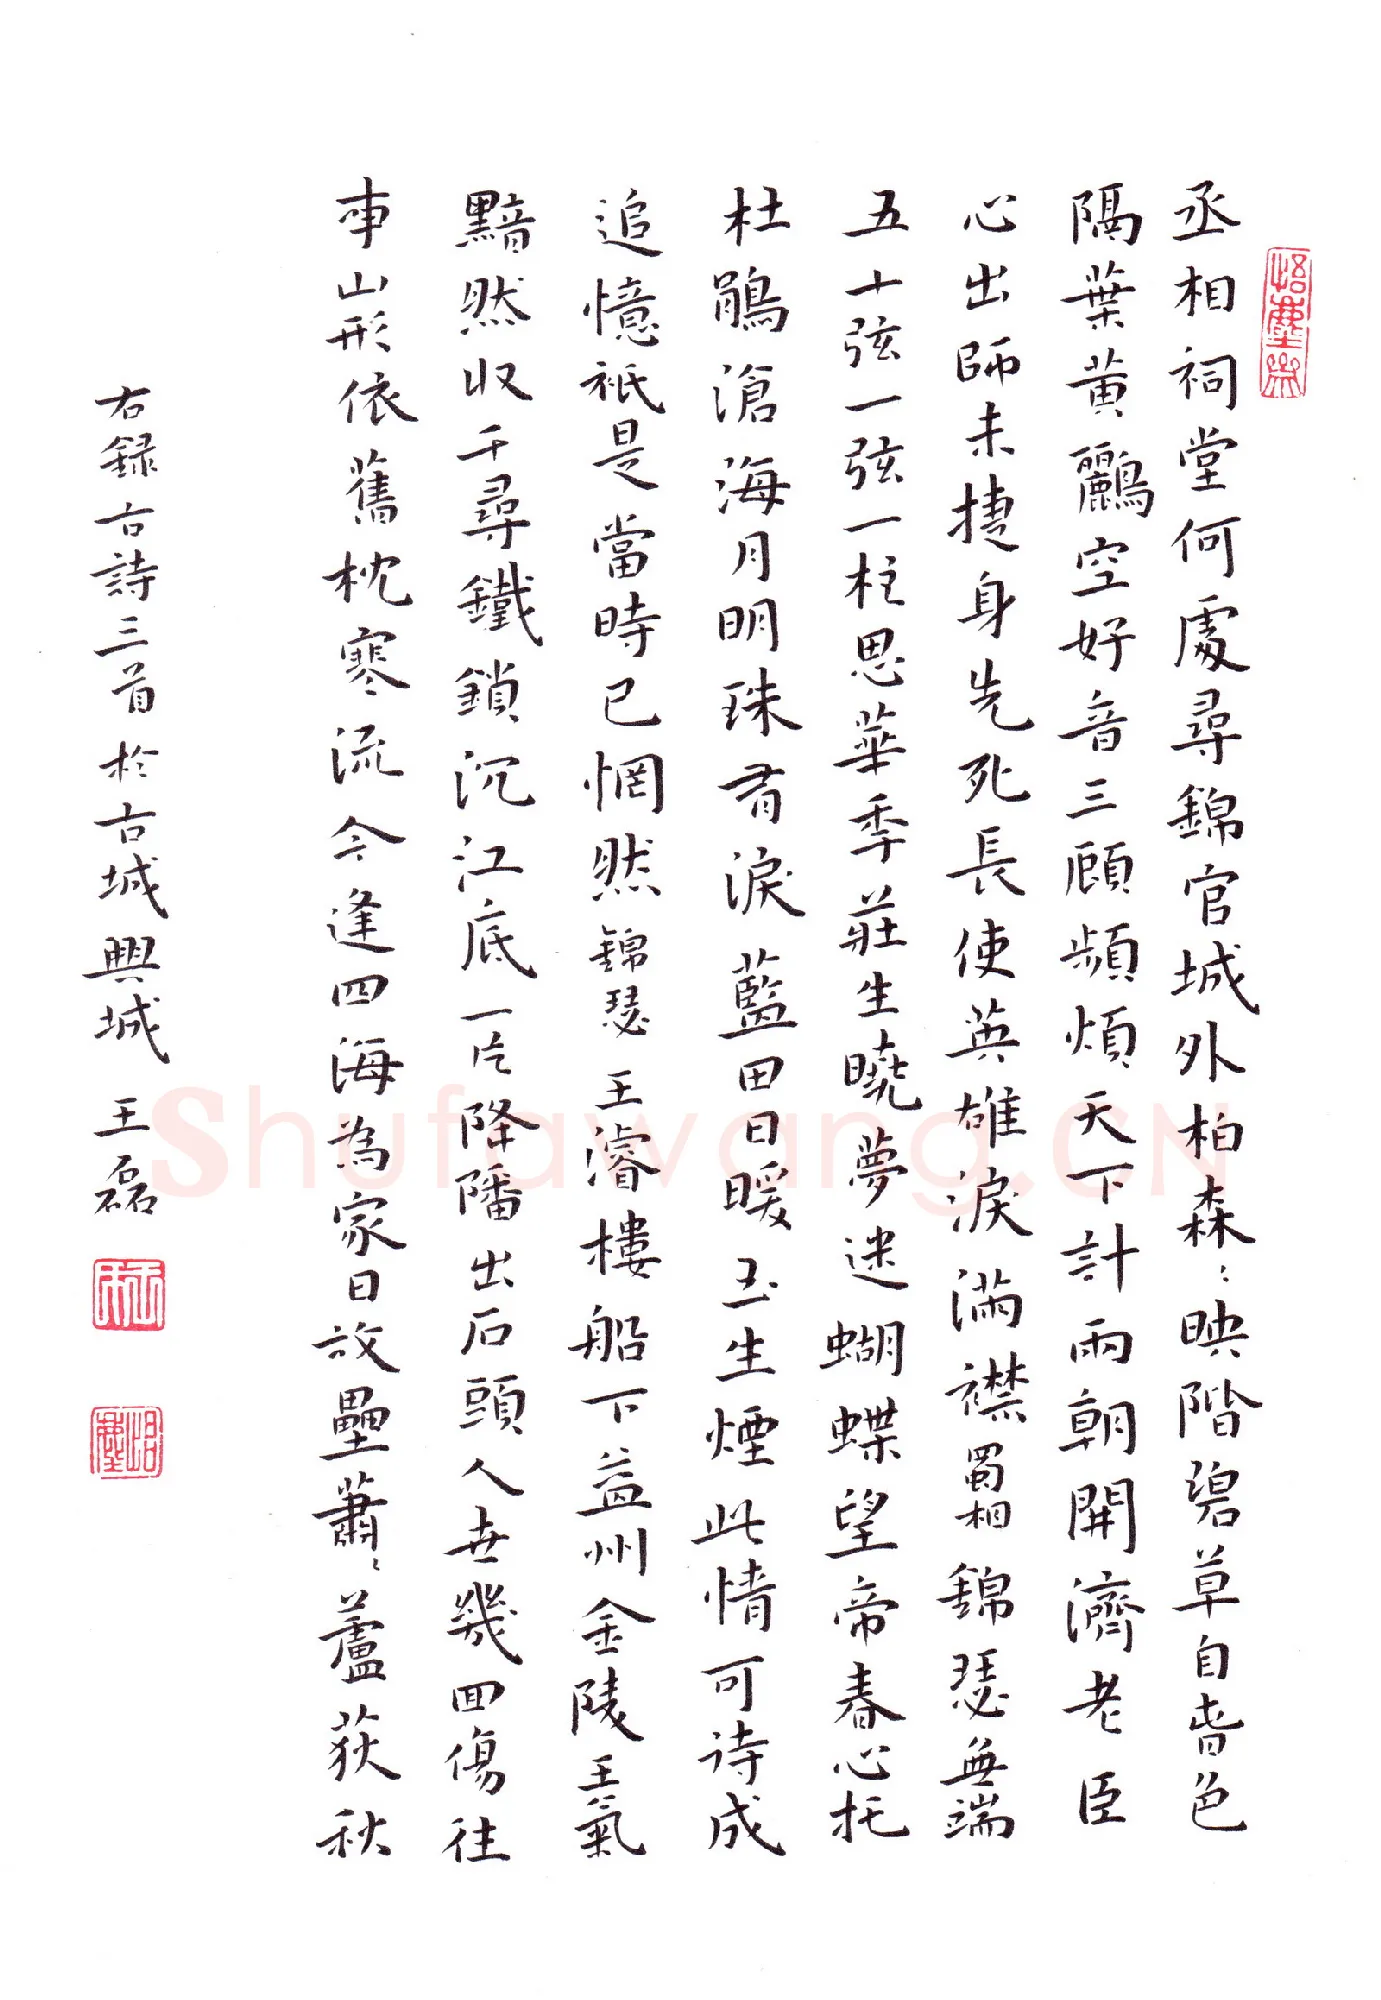 丞相祠堂何處尋錦官城外柏森〻映階碧草自春色
隔葉黃鸝空好音三顧頻煩天下計兩朝開濟老臣
心出師未捷身先死長使英雄淚滿襟蜀相錦瑟無端
五十弦一弦一柱思華季莊生曉夢迷蝴蝶望帝春心托
杜鵑滄海月明珠有淚藍田日暖玉生煙此情可待成
追憶祇是當時已惘然錦瑟王濬樓船下益州金陵王氣
黯然收千尋鐵鎖沉江底一片降旛出石頭人世幾回傷往
事山形依舊枕寒流今逢四海為家日故壘蕭〻蘆荻秋
右録古詩三首於古城興城王磊
悟塵
Shufawang.CN